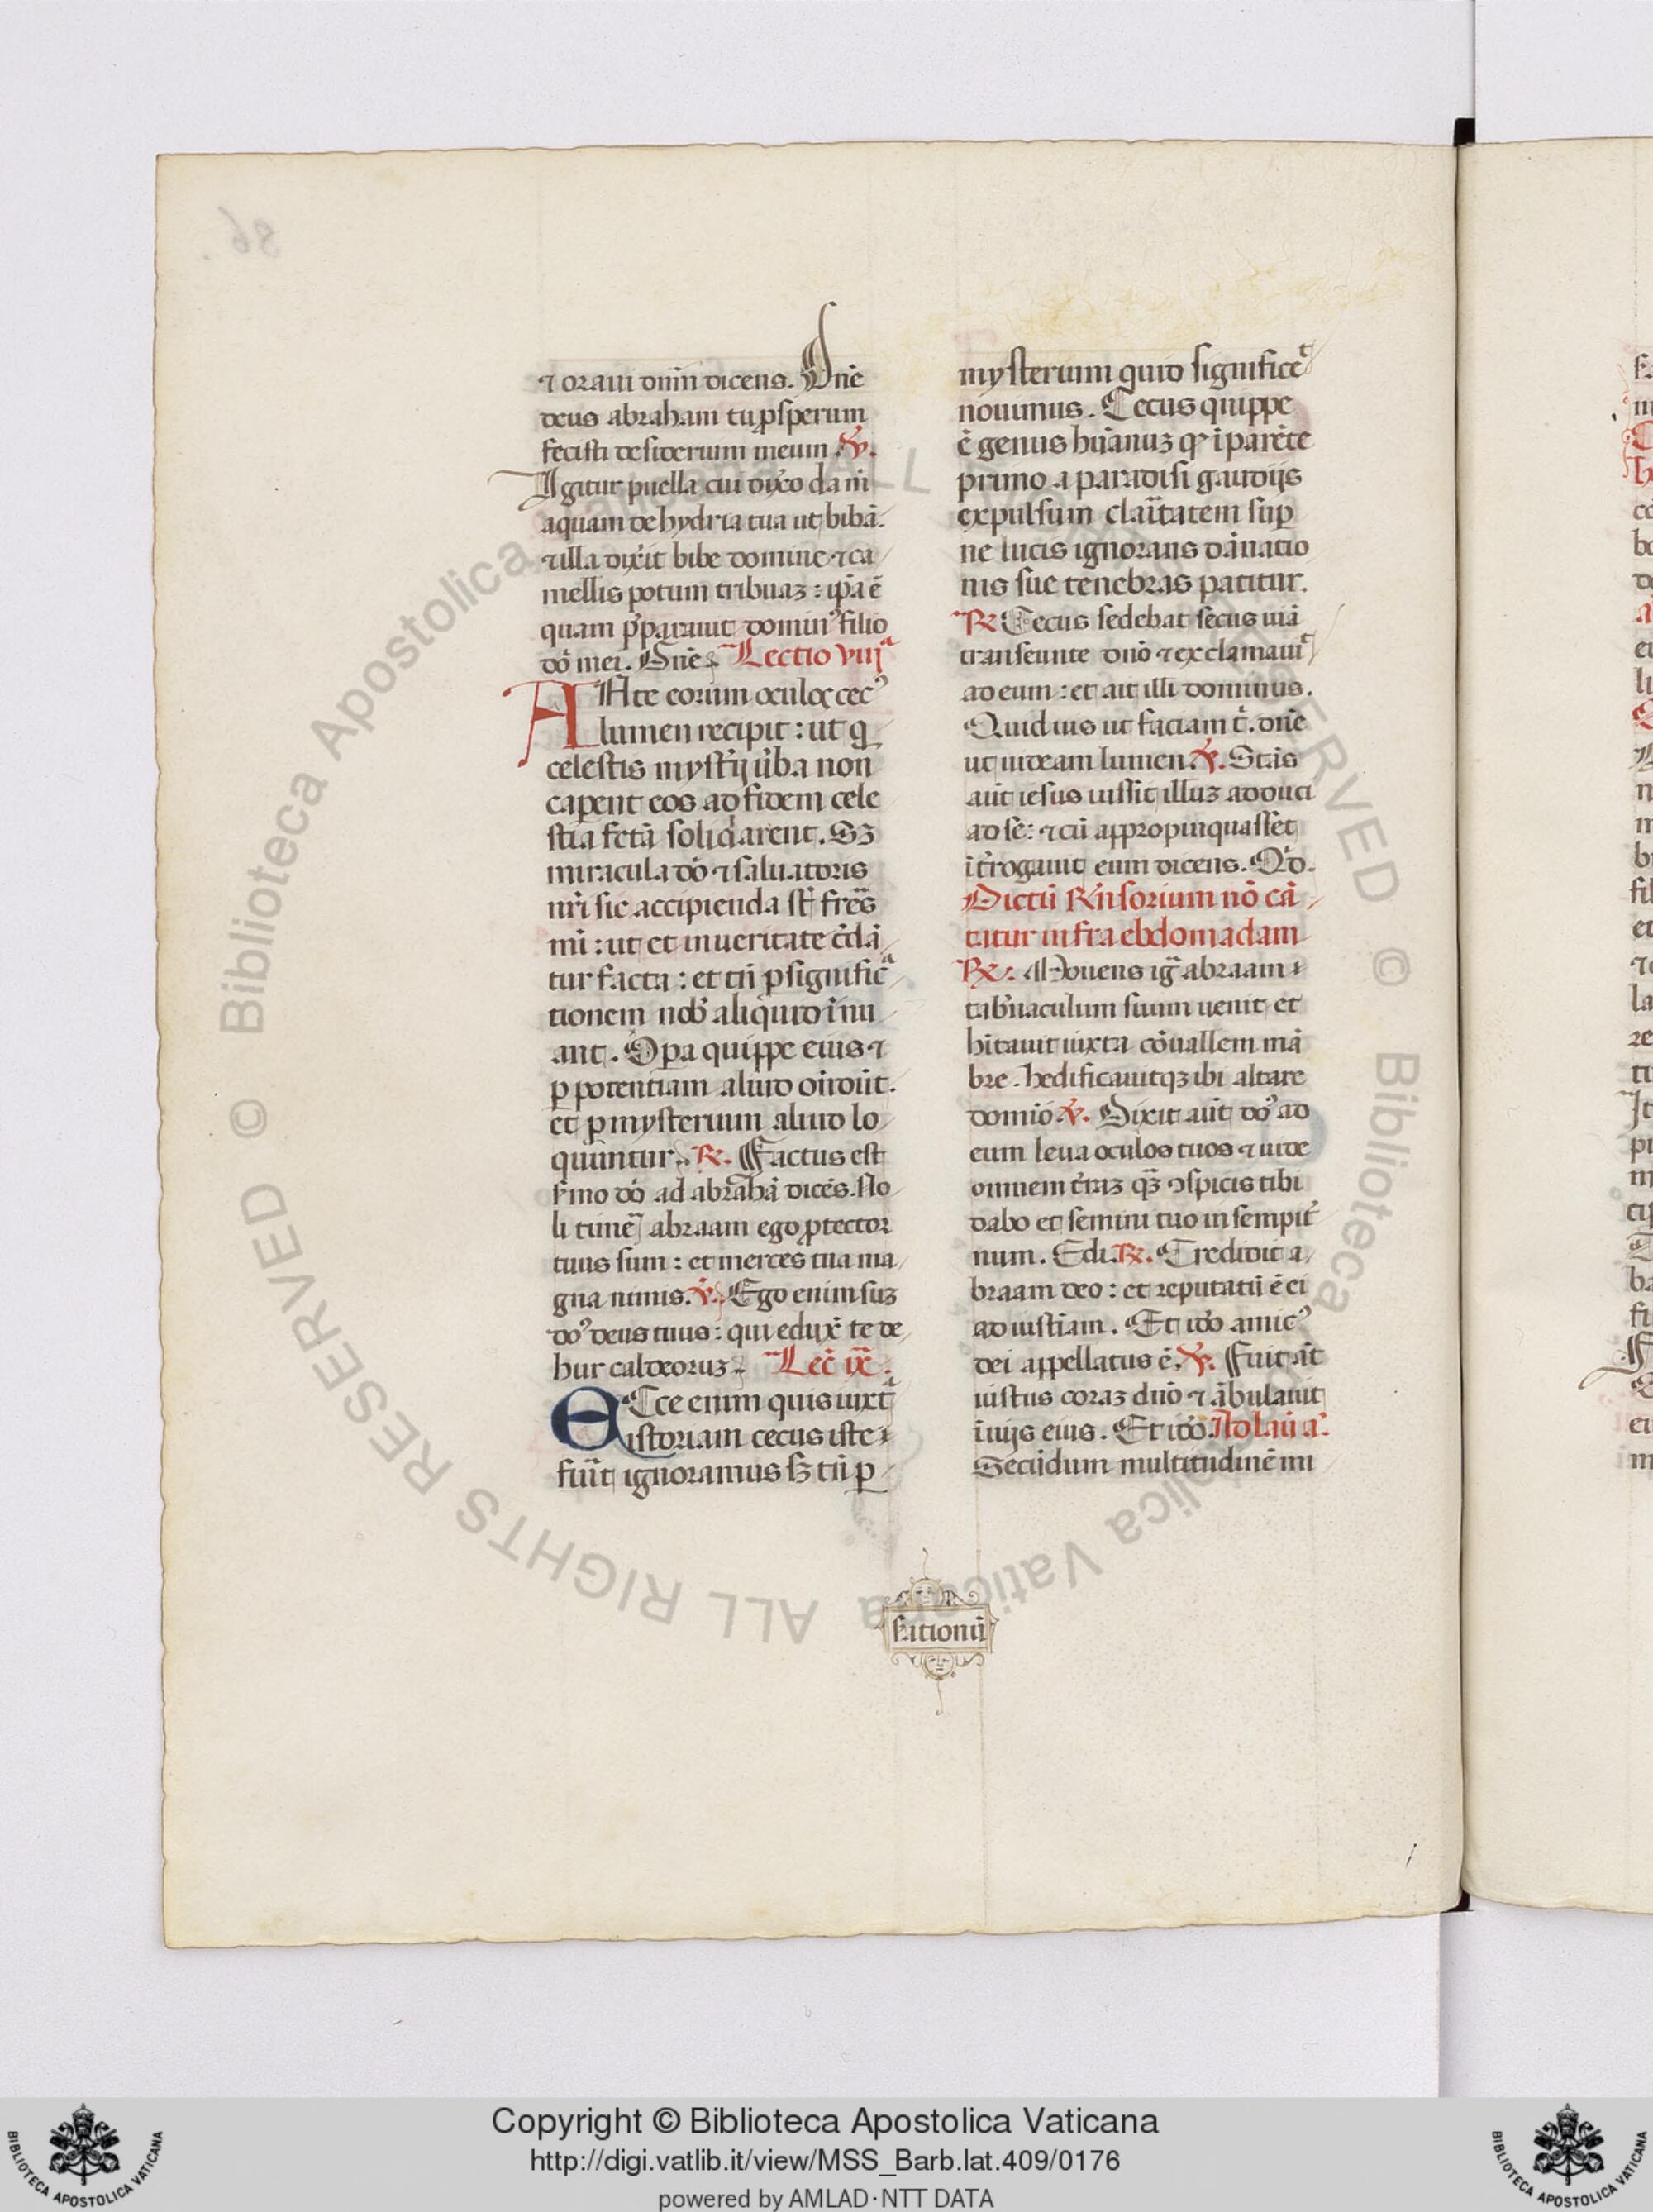 ⁊ oraui dnm̄ dicens. Dn̄e
deus abraham tu ꝓsperum
fecisti desiderium meum ℣.
Igitur puella cui dixero da m̄
aquam de hydria tua ut bibā.
⁊ illa dix̄it bibe domine ⁊ ca
mellis potum tribuaz : ip̄a ē
quam p̄parauit domin᷒ filio
dō mei. Dn̄e. Lectio viijᵃ
ANte eorum oculoꝝ cec᷒
lumen recipit : ut q
celestis mysťij u̇ba non
caperent eos ad fidem cele
stia fctā solidarent. Sꝫ
miracula dō ⁊ saluatoris
nr̄i sic accipienda st̄ fr̄es
mi : ut et in ueritate c̄dā
tur facta : et tn̄ ꝑ significᵃ
tionem nob᷒ aliquid īnu
ant. Oꝑa quippe eius ⁊
ꝑ potentiam aliud ondūt.
et ꝑ mysterium aliud lo
quuntur. ℟. Factus est
s̄mo dō ad abrahā dicēs. No
li time abraam ego ꝓtector
tuus sum : et merces tua ma
gna nimis. ℣. Ego enim suꝫ
do᷒ deus tuus : qui edux̄ te de
hur caldeoruꝫ. Lec̄ ix̄.
ECce enim quis iuxtᵃ
istoriam cecus iste
fūit ignoramus sꝫ tn̄ ꝑ
mysterium quid significeᵗ
nouimus. Cecus quippe
ē genus hūanuꝫ q ī parēte
primo a paradisi gaudijs
expulsum claritatem suꝑ
ne lucis ignorans dānatio
nis sue tenebras patitur.
℟ Cecus sedebat secus uiā
transeunte dnō ⁊ exclamauiᵗ
ad eum : et ait illi dominus.
Quid uis ut faciam t̄. dn̄e
ut uideam lumen. ℣. Stās
aūt iesus iussit illuꝫ adduci
ad se : ⁊ cū appropinquasset
īt̄rogauit eum dicens. Qd.
Dictū Rn̄sorium nō cā
tatur infra ebdomadam
℟. Mouens ig abraam
tab̄naculum suum uenit et
hitauit iuxta cōuallem mā
bre. hedificauitqꝫ ibi altare
domiō ℣. Dixit aūt do᷒ ad
eum leua oculos tuos ⁊ uide
omnem t̄raꝫ quā ꝯspicis tibi
dabo et semini tuo in sempit̄
num. Edi. ℟. Credidit a
braam deo : et reputatū ē ei
ad iustiam. Et iđo amic᷒
dei appellatus ē. ℣. Fuit āt
iustus coraꝫ dnō ⁊ ābulauit
ī uijs eius. Et iđo. Ad lau a.
Secūdum multitudinē mi
serationū
Copyright © Biblioteca Apostolica Vaticana
http://digi.vatlib.it/view/MSS_Barb.lat.409/0176
powered by AMLAD·NTT DATA
BIBLIOTECA APOSTOLICA VATICANA
BIBLIOTECA APOSTOLICA VATICANA